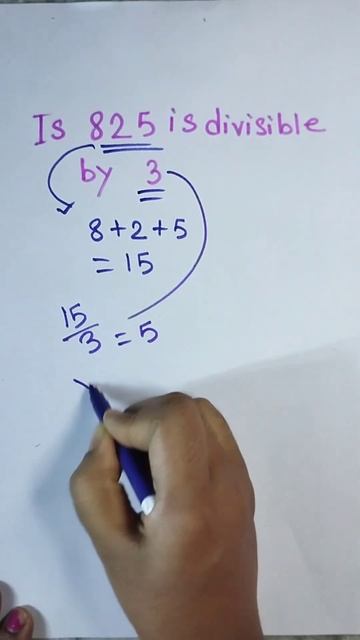 Is 825 is divisible
by 3
8+2+5
= 15
15/3 = 5